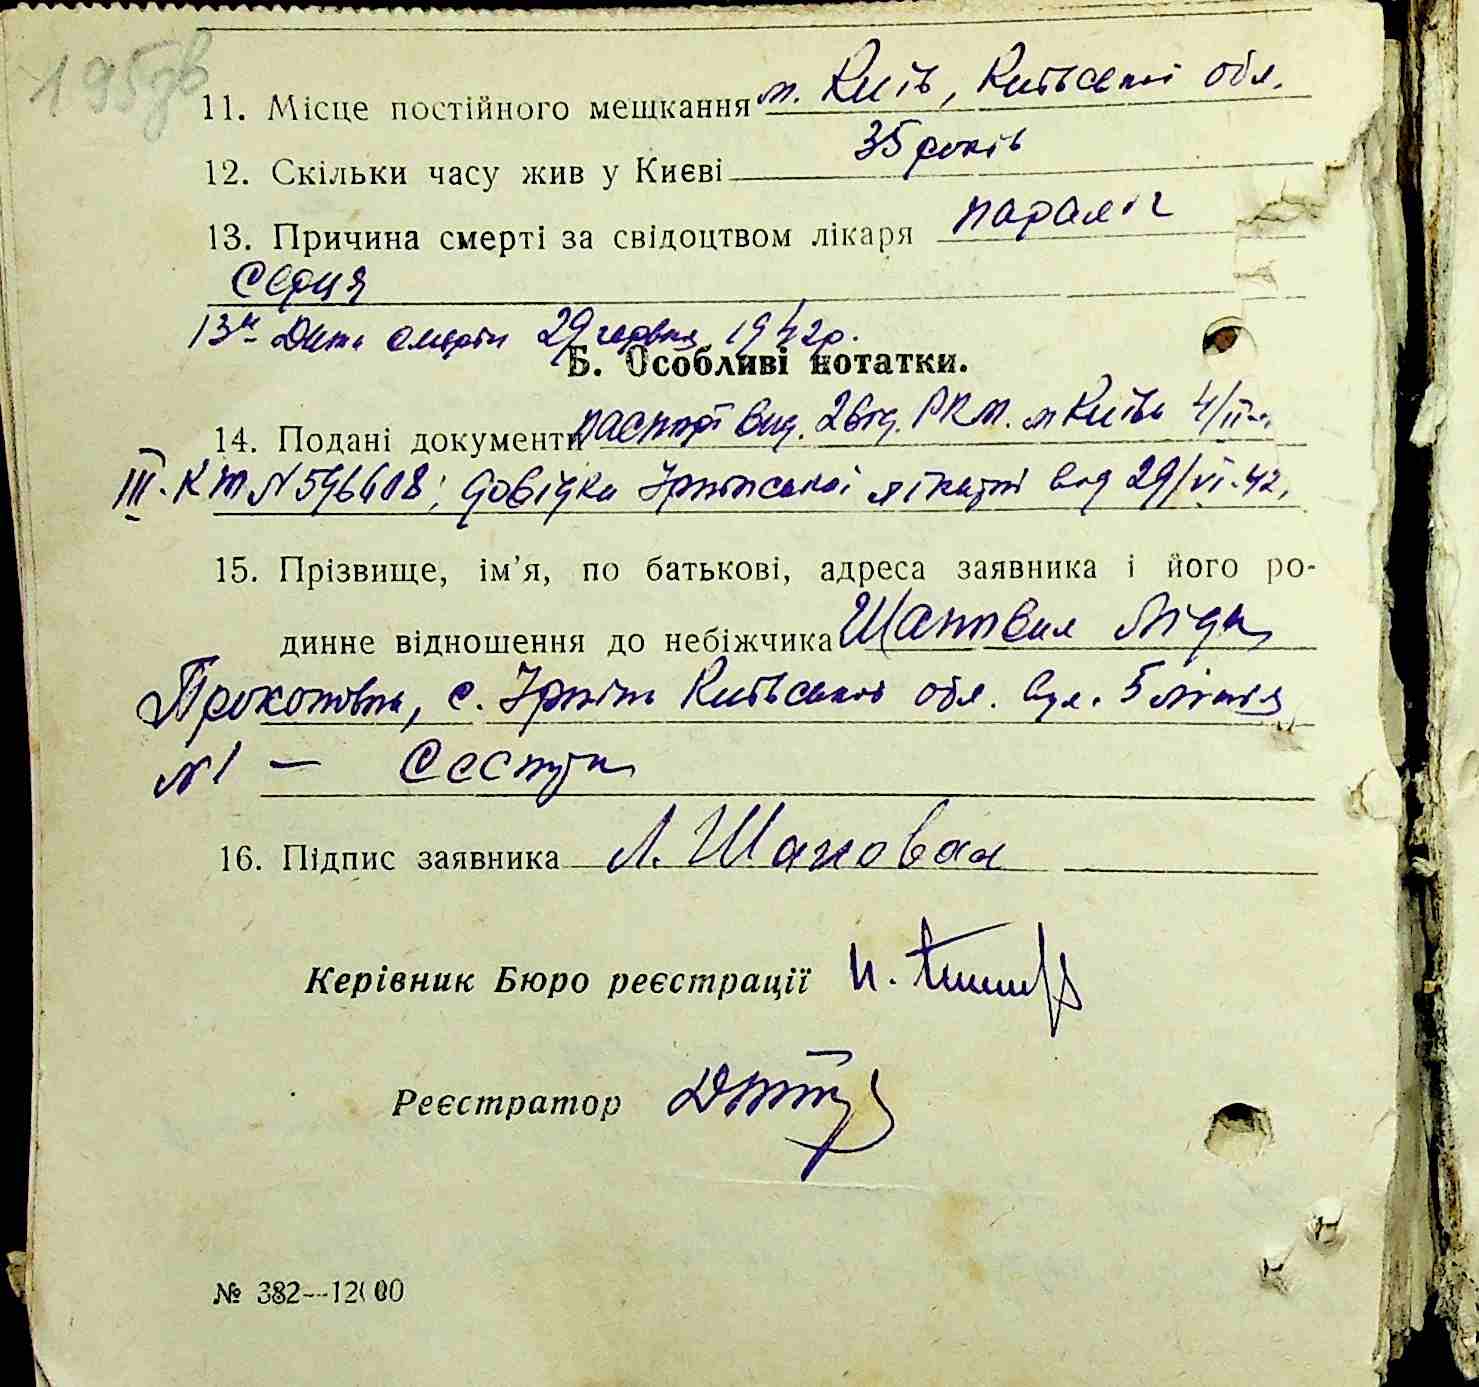 195зв
11. Місце постійного мешкання м. Київ, Київської обл.
12. Скільки часу жив у Києві 35 років
13. Причина смерті за свідоцтвом лікаря параліч
серця
13а Дата смерти 29 червня 1942 р.
Б. Особливі нотатки.
14. Подані документи паспорт вид. 2 від. РКМ. м Київа 4/II
III. КТ № 596608; довідка Ірпінської лікарні від 29/VI-42,
15. Прізвище, ім’я, по батькові, адреса заявника і його ро-
динне відношення до небіжчика Шаповал Ліда
Прокоповна, с. Ірпінь Київської обл. вул. 5 лінія
№1 — сестра
16. Підпис заявника Л. Шаповал
Керівник Бюро реєстрації
Реєстратор
№ 382—12000